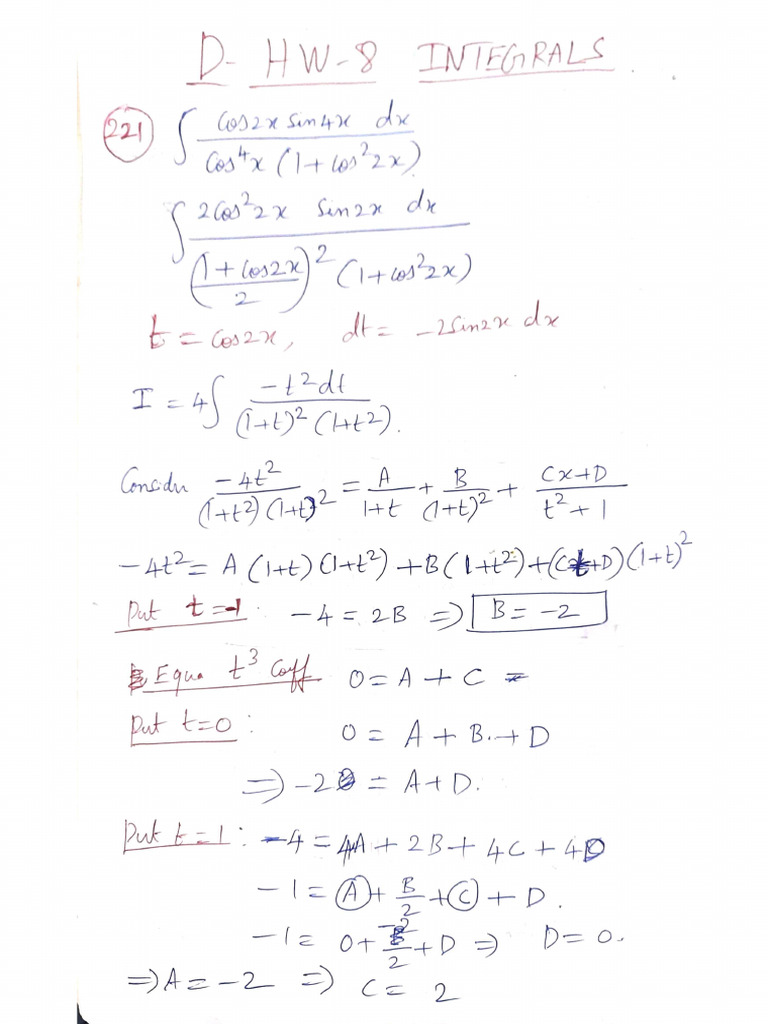 D- HW-8 INTEGRALS.
221 ∫ cos2x sin4x dx / cos⁴x (1+cos²2x)
∫ 2cos²2x sin2x dx / ((1+cos2x)/2)² (1+cos²2x)
t = cos2x, dt = -2sin2x dx
I = 4∫ -t²dt / (1+t)² (1+t²).
Consider -4t² / (1+t²)(1+t)² = A/(1+t) + B/(1+t)² + (Cx+D)/(t²+1)
-4t² = A(1+t)(1+t²) + B(1+t²) + (Ct+D)(1+t)²
Put t=-1: -4 = 2B ⇒ B = -2
Equa t³ coff 0 = A + C
Put t=0: 0 = A + B + D
⇒ -2 = A+D.
Put t=1: -4 = 4A + 2B + 4C + 4D
-1 = A + B/2 + C + D.
-1 = 0 + -2/2 + D ⇒ D = 0.
⇒ A = -2 ⇒ C = 2